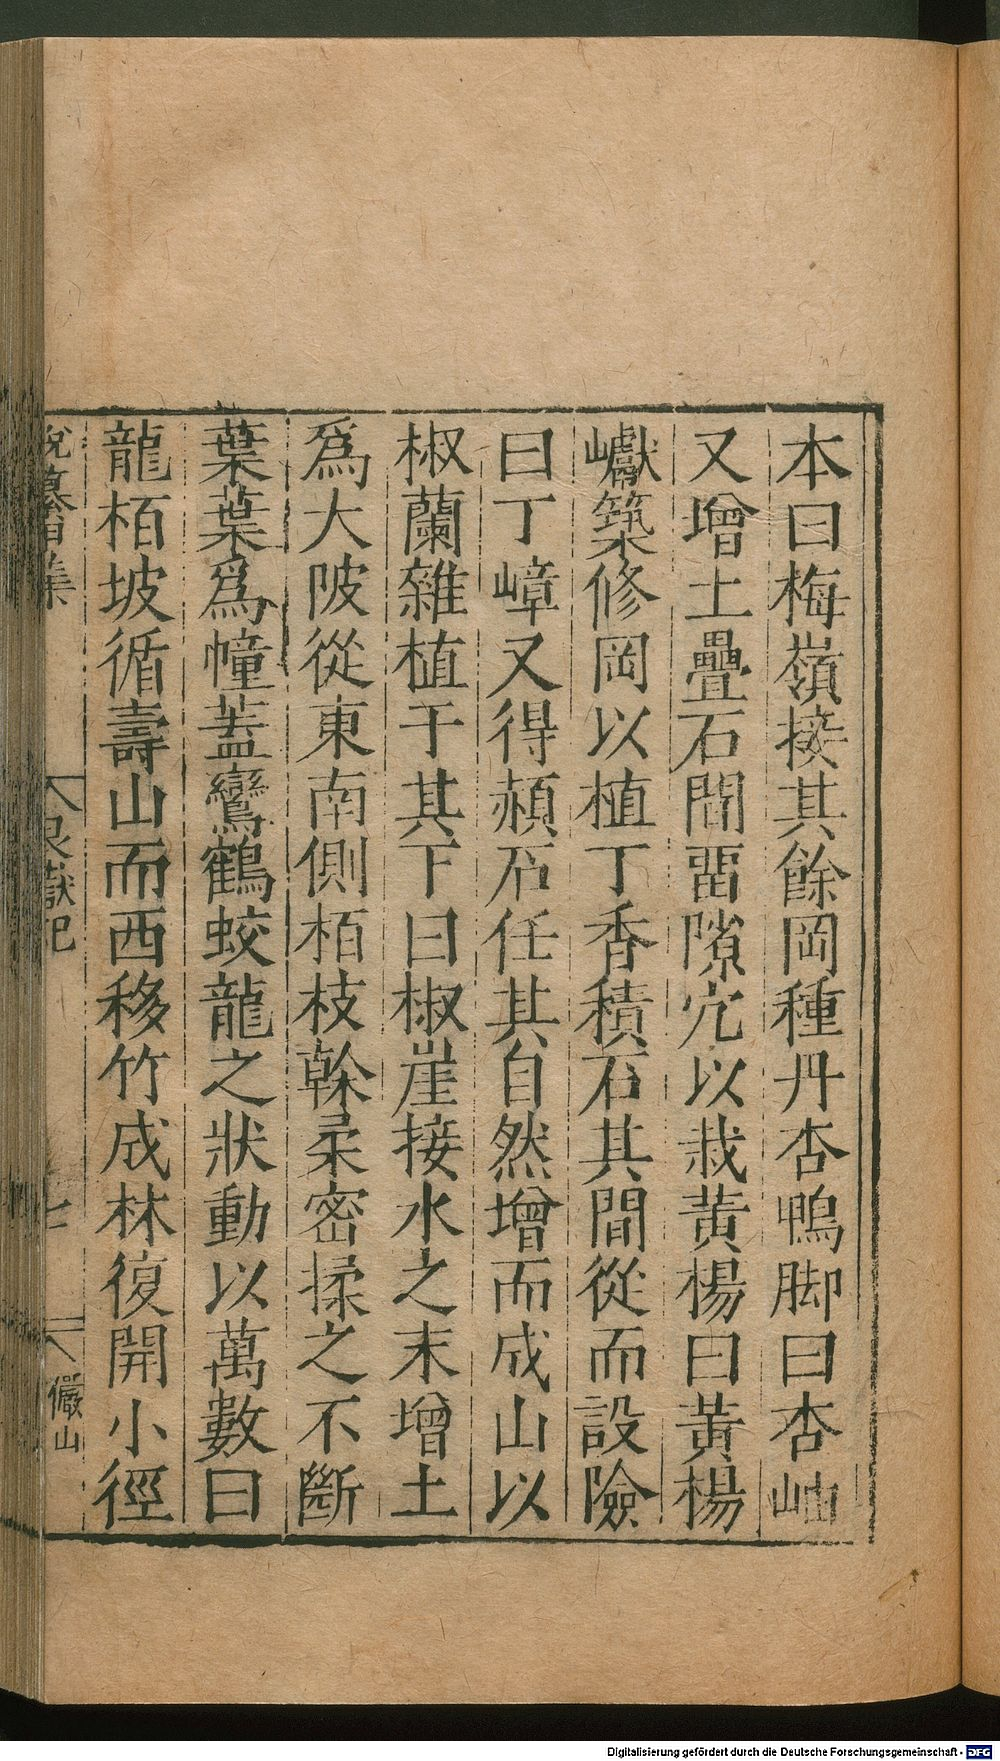 本曰梅嶺接其餘岡種丹杏鴨脚曰杏岫
又增土疊石間畱隙穴以栽黃楊曰黃楊
巘築修岡以植丁香積石其間從而設險
曰丁嶂又得赬石任其自然增而成山以
椒蘭雜植于其下曰椒崖接水之末增土
爲大陂從東南側栢枝榦柔密揉之不斷
葉葉爲幢蓋鸞鶴蛟龍之狀動以萬數曰
龍栢坡循壽山而西移竹成林復開小徑
說纂集
艮嶽記
七
儼山
Digitalisierung gefördert durch die Deutsche Forschungsgemeinschaft - DFG